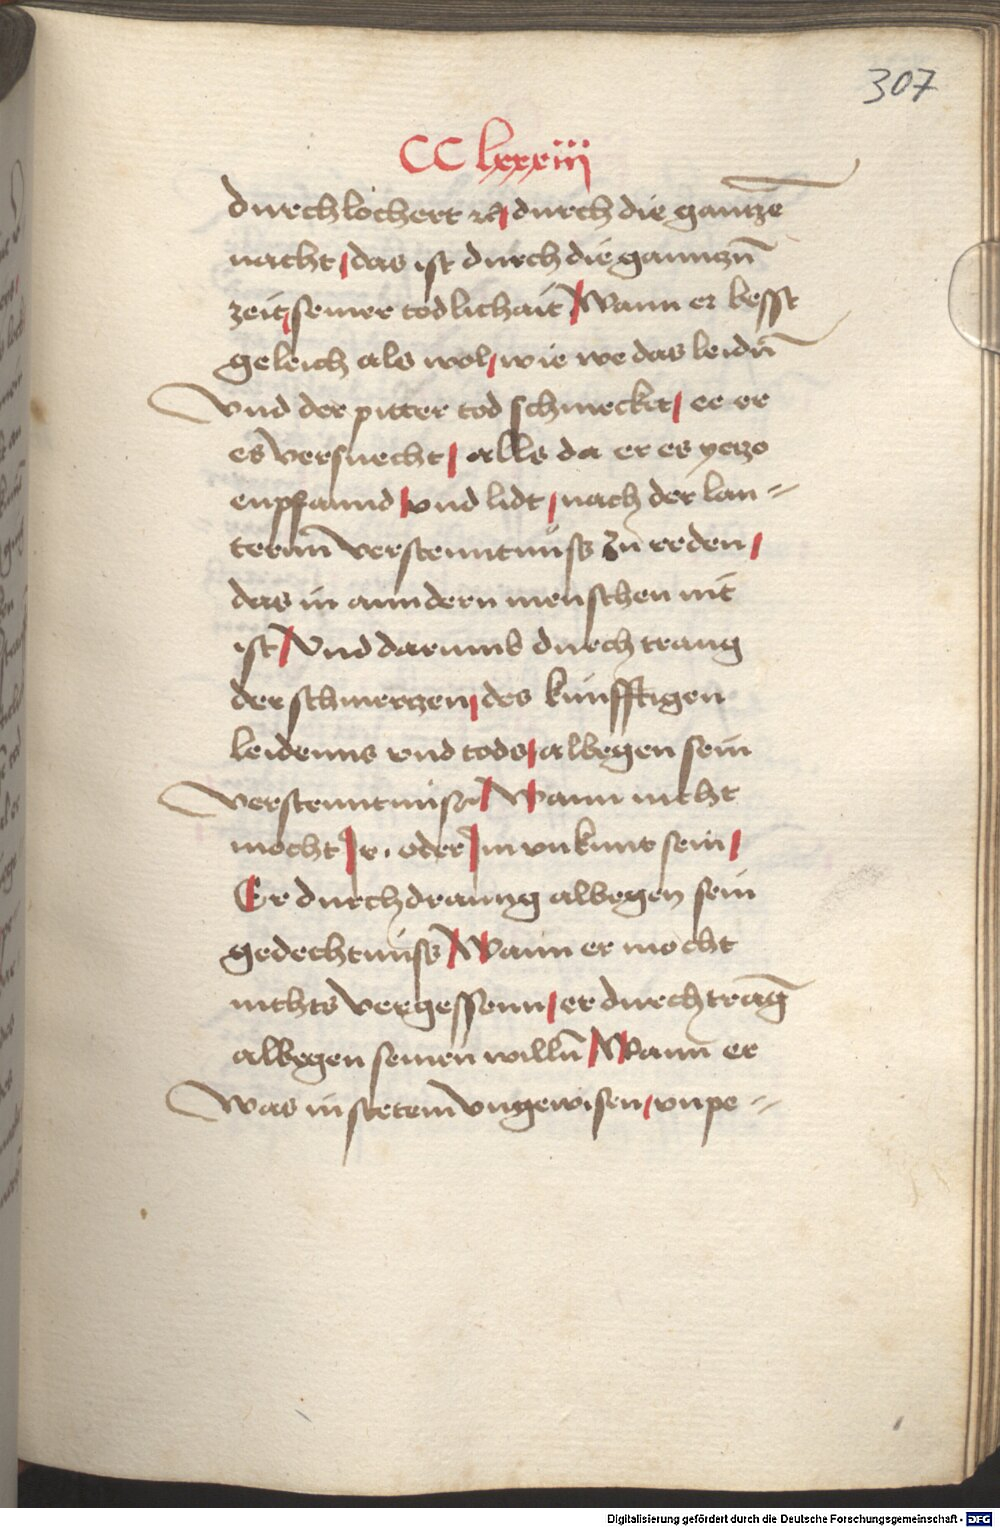 307
CC lxxxiiij
durchlöchert ⁊c durch die ganntzē
nacht / das ist durch die ganntzn̄
zeit / seiner todlichait / Wann er besst
geleich als wol / wie we das leidn̄
vnd der pitter tod schmecket / ee er
es versuecht / alls da er es yetzo
enpfannd / vnd lidt / nach der lau=
terim̄ verstenntnuss zu reden /
das in anndern menschen nit
ist / Vnd darumb durchtrang
der schmertzen / des künfftigen
leidenns vnd tods / albegen sein
verstenntnuss / Wann nicht
mocht Jr . oder Jm vnkunt sein /
Er durchdranng albegen sein
gedechtnuss / Wann er mocht
nichts vergessenn / er durchtrāg
albegen seinen willn̄ / Wann er
was in stetem vngewisen / vnpe=
Digitalisierung gefördert durch die Deutsche Forschungsgemeinschaft - DFG